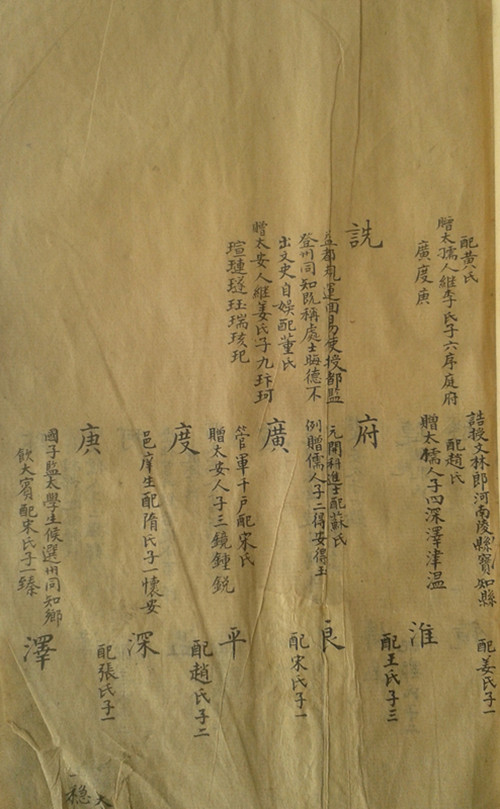 配黄氏
贈太孺人継李氏子六序庭府
廣度庚
詵
益都軋運四易使授部監
登州同知既稱處士晦德不
出文史自娛配董氏
贈太安人継姜氏子九玣珂
瑄璉璲珏瑞琰玘
誥授文林郎河南陵縣寳知縣
配趙氏
贈太孺人子四深澤津温
府
元開科進士配蘇氏
例贈儒人子二得安得玉
廣
管軍千戶配宋氏
贈太安人子三鏡鍾鋭
度
邑庠生配隋氏子一懷安
庚
國子監太學生候選州同知鄉
飲大賓配宋氏子一臻
配姜氏子一
淮
配王氏子三
良
配宋氏子一
平
配趙氏子二
深
配張氏子一
澤
大
穏